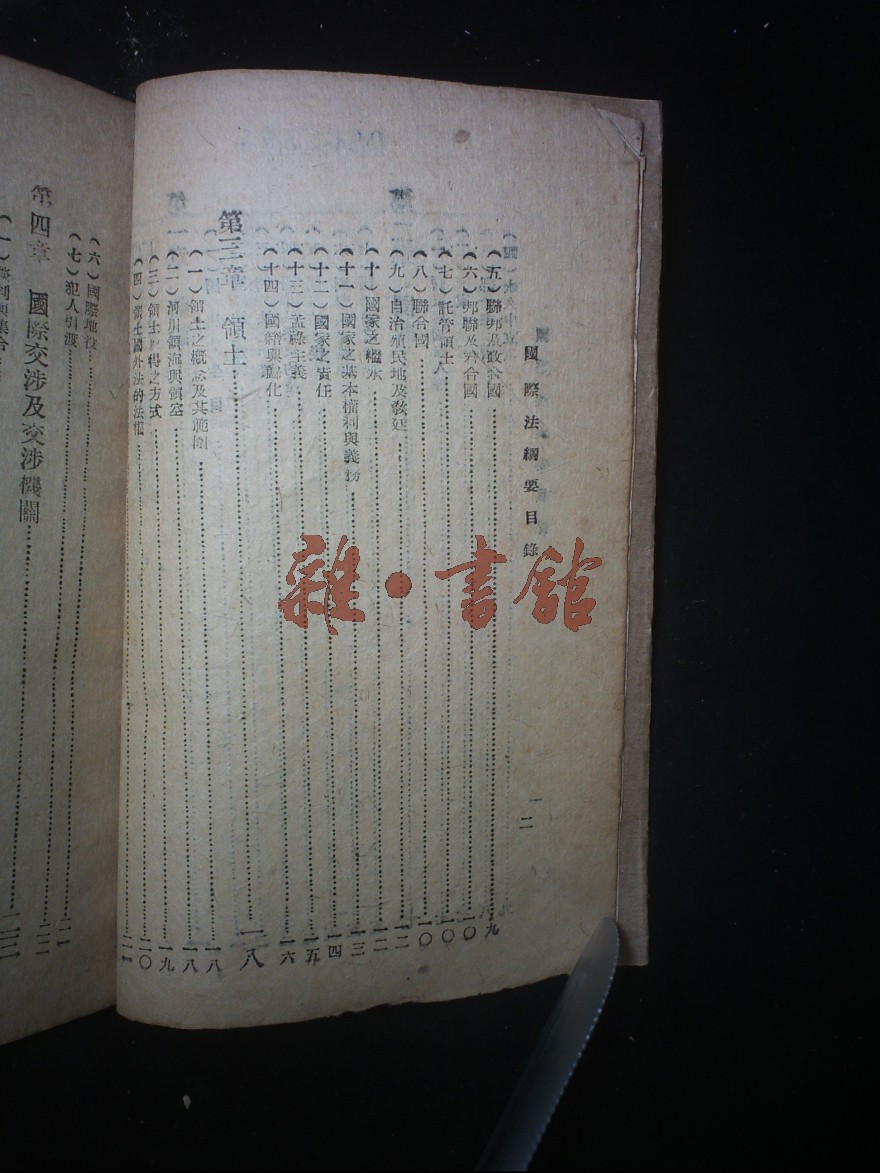 國際法綱要目錄
二
(五)聯邦及政合國……九
(六)邦聯及君合國……一〇
(七)託管領土……一〇
(八)聯合國……一〇
(九)自治殖民地及敎廷……一二
(十)國家之繼承……一二
(十一)國家之基本權利與義務……一三
(十二)國家之責任……一四
(十三)孟祿主義……一五
(十四)國籍與歸化……一六
第三章 領土……一八
(一)領土之概念及其範圍……一八
(二)河川領海與領空……一八
(三)領土取得之方式……一九
(四)領土國外法的法權……二〇
(六)國際地役
(七)犯人引渡……二一
第四章 國際交涉及交涉機關
雜·書館